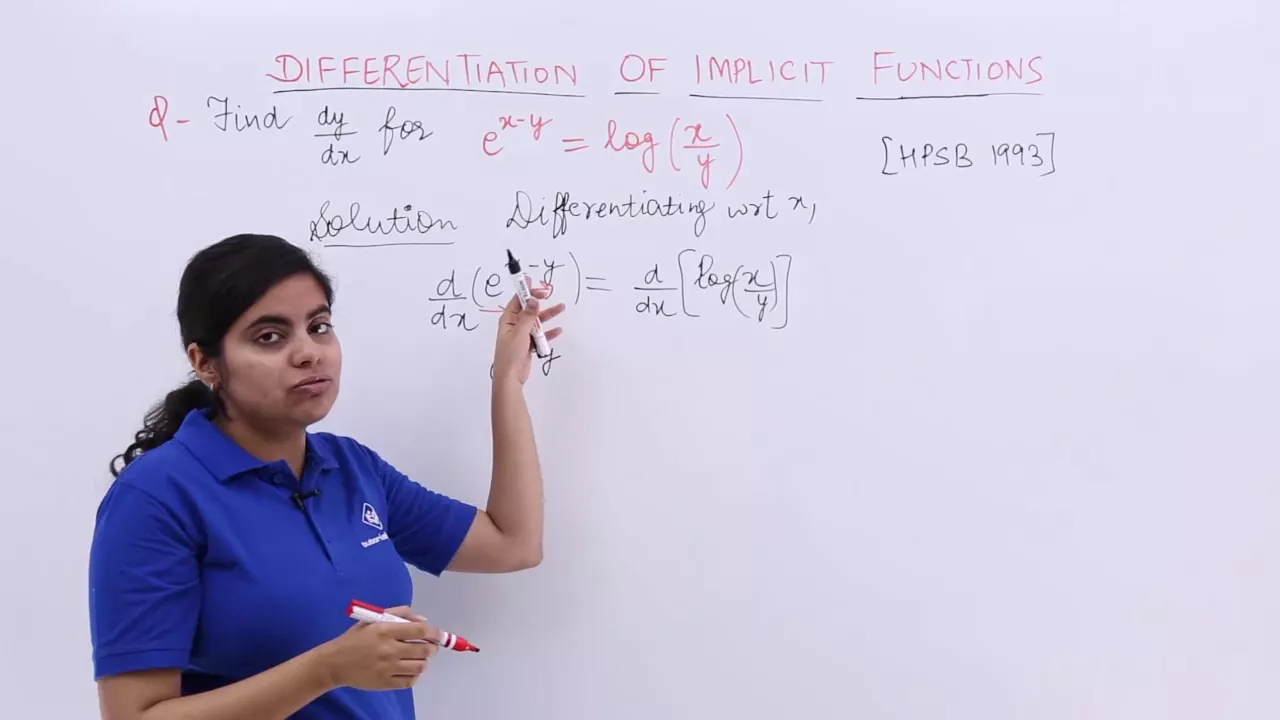 DIFFERENTIATION OF IMPLICIT FUNCTIONS
Q- Find dy/dx for e^{x-y} = log(x/y) [HPSB 1993]
Solution Differentiating wrt x,
d/dx (e^{x-y}) = d/dx [log(x/y)]
y